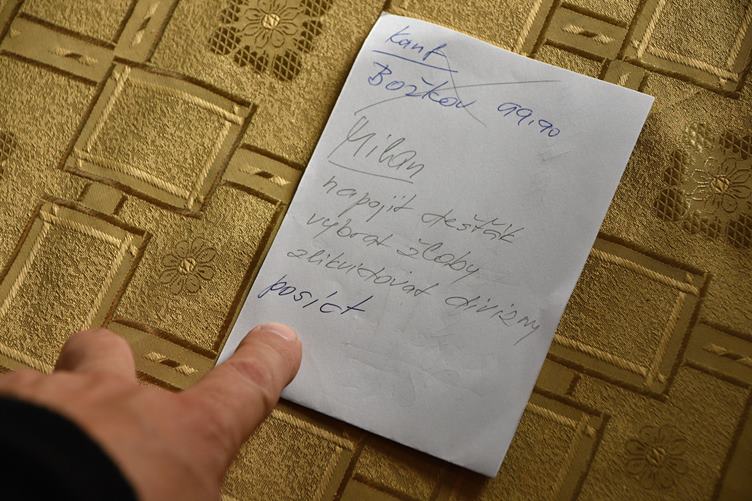 Kauf
Božkov 99,90
Milan
napojit dešťák
vybrat žlaby
zlikvidovat divizny
posíct